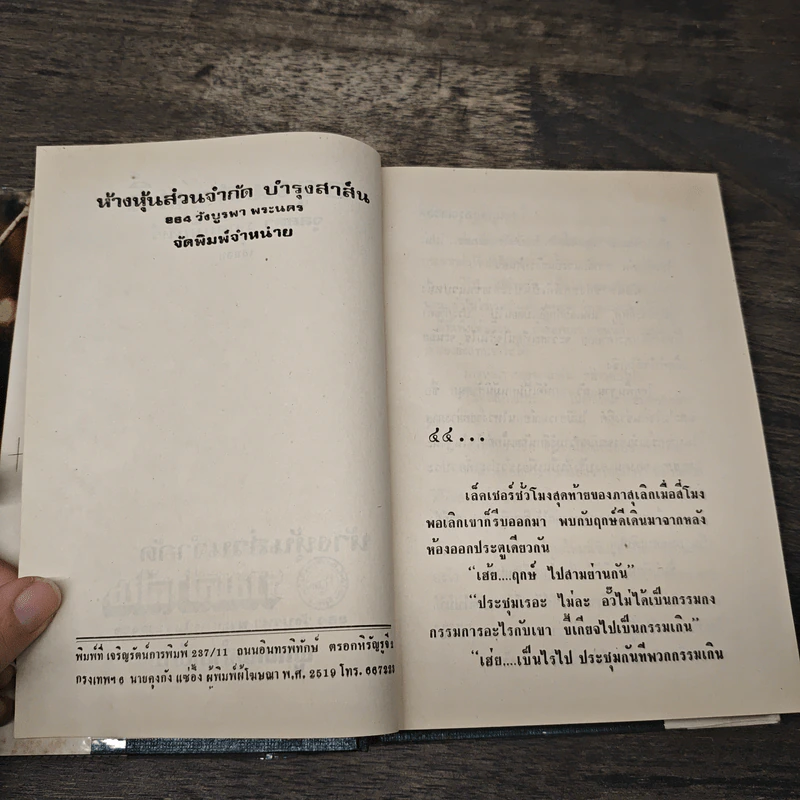 ห้างหุ้นส่วนจำกัด บำรุงสาส์น
๘๘๔ วังบูรพา พระนคร
จัดพิมพ์จำหน่าย
พิมพ์ที่ เจริญรัตน์การพิมพ์ 237/11 ถนนอินทรพิทักษ์ ตรอกหิรัญรูจี
กรุงเทพฯ 6 นายคุงกัง แซ่อึ้ง ผู้พิมพ์ผู้โฆษณา พ.ศ. 2519 โทร.
๔๔...
เล็คเชอร์ชั่วโมงสุดท้ายของภาสุเลิกเมื่อสี่โมง
พอเลิกเขาก็รีบออกมา พบกับฤกษ์ดีเดินมาจากหลัง
ห้องออกประตูเดียวกัน
“เฮ้ย....ฤกษ์ ไปสามย่านกัน”
“ประชุมเรอะ ไม่ละ อั๊วไม่ได้เป็นกรรมกง
กรรมการอะไรกับเขา ขี้เกียจไปเป็นกรรมเกิน”
“เฮ่ย....เป็นไรไป ประชุมกันทีพวกกรรมเกิน